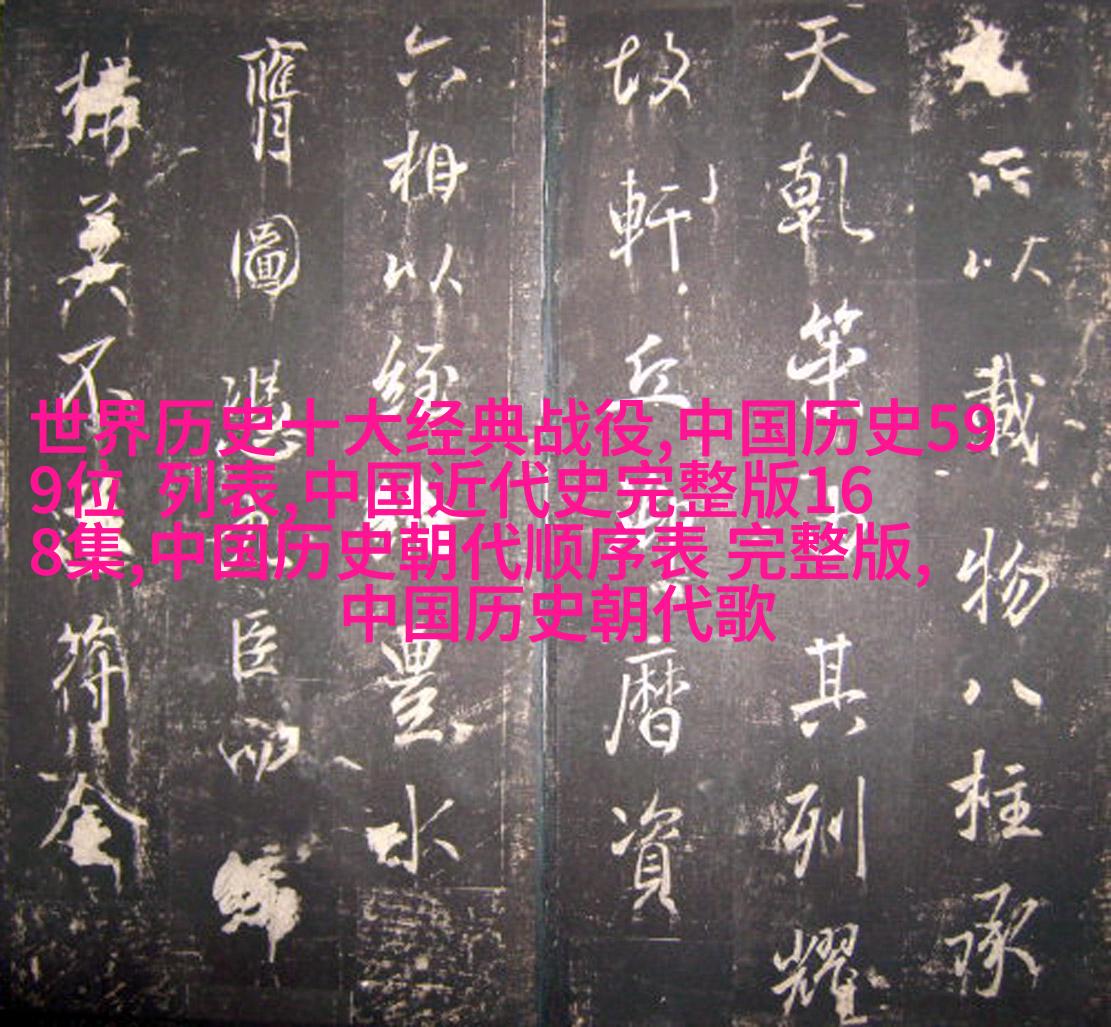 世界历史十大经典战役,中国历史59
9位 列表,中国近代史完整版16
8集,中国历史朝代顺序表 完整版,
中国历史朝代歌
所以載物八柱承
天乾其列耀
故軒丘曆資
六相以經豐水
膺圖憑臣而締
構美不符